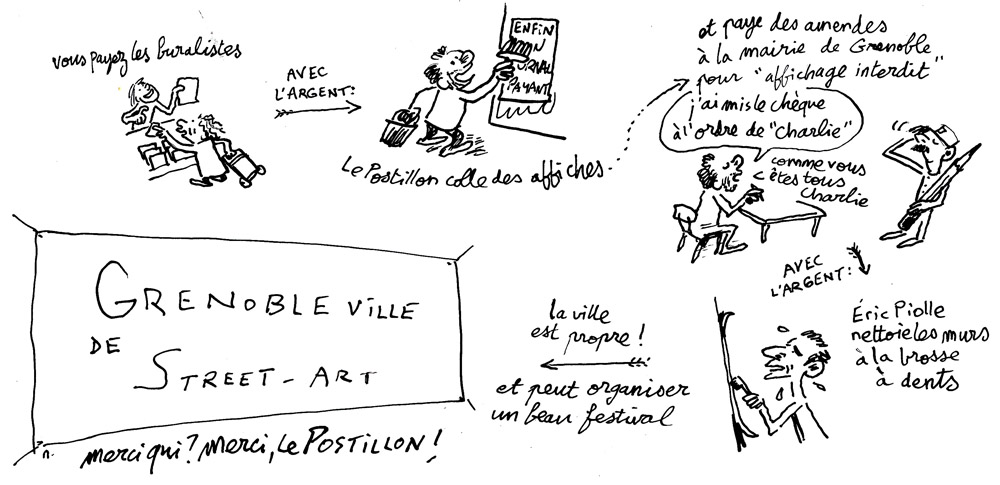 vous payez les buralistes
AVEC
L'ARGENT:
ENFIN
UN
JOURNAL
PAYANT
Le Postillon colle des affiches.
et paye des amendes
à la mairie de Grenoble
pour "affichage interdit"
j'ai mis le chèque
à l'ordre de "Charlie"
comme vous
êtes tous
Charlie
AVEC
L'ARGENT:
Éric Piolle
nettoie les murs
à la brosse
à dents
la ville
est propre!
et peut organiser
un beau festival
GRENOBLE VILLE
DE
STREET-ART
n.
merci qui? Merci, Le POSTILLON!